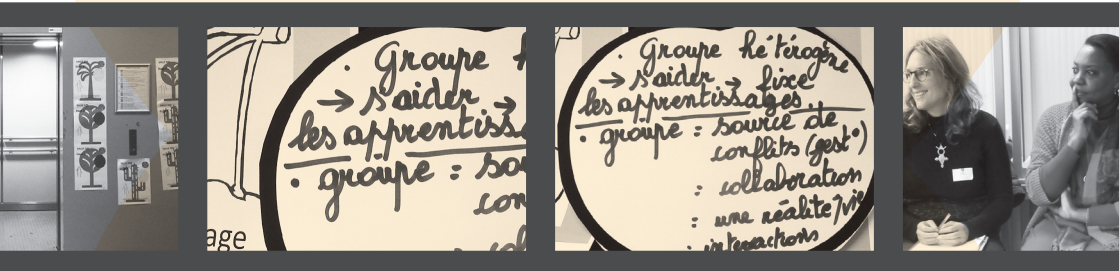 . Groupe h
→ s'aider →
les apprentiss
. groupe : sou
con
: col
age
. Groupe hétérogène
→ s'aider → fixe
les apprentissages.
groupe : source de
conflits (gest°)
: collaboration
: une réalité/vie
: interactions